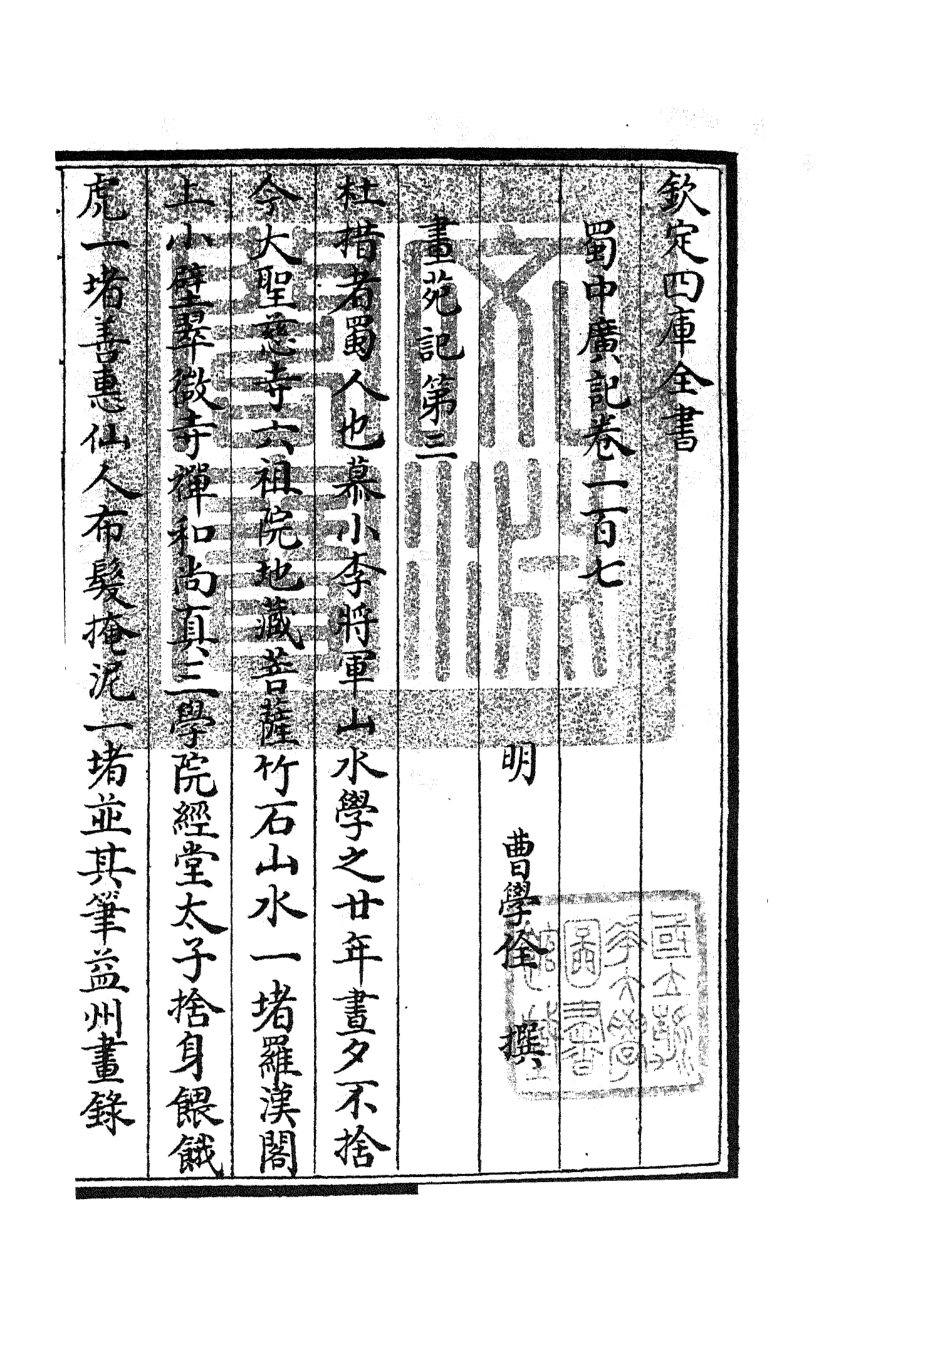 欽定四庫全書
蜀中廣記卷一百七
明　曹學佺　撰
畫苑記第三
杜措者蜀人也慕小李將軍山水學之廿年晝夕不捨
今大聖慈寺六祖院地藏菩薩竹石山水一堵羅漢閣
上小壁翠微寺禪和尚真三學院經堂太子捨身餵餓
虎一堵善惠仙人布髮掩泥一堵並其筆益州畫錄